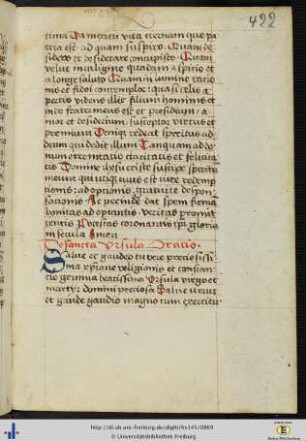 422
tima Da meritū vitā eternam que pa
tria est ad quam suspiro Quam de
sidero et desiderare concupisco Quam
velut in caligine quadam aspicio et
a longe saluto Quam in lumine ratio
nis et fidei contemplor quasi celis a
pertis videns illic filium hominis et
dei fratrem meus est et presidium a
mor et desiderium susceptor virtus et
premium Deniqȝ redeat spiritus ad
deum qui dedit illum Tanquam ad do
mum eternitatis claritatis et felicita
tis Domine ihesu criste suscipe spiritum
meum qui tuus est iure redemp
tionis adoptionis gratuite despon
sacionis Ac perinde dat spem firma
bonitas adoptantis veritas promit
tentis Potestas coronantis ipsi gloria
in secula Amen
De sancta Ursula Oratio
Salve et gaudeo tu vere preciosissi
ma xpiane religionis et constan
tie gemma beatissima Ursula virgo et
martyr domini preciosa Salve iterum
et gaude gaudio magno cum exercitu
http://dl.ub.uni-freiburg.de/diglit/hs141/0869
© Universitätsbibliothek Freiburg